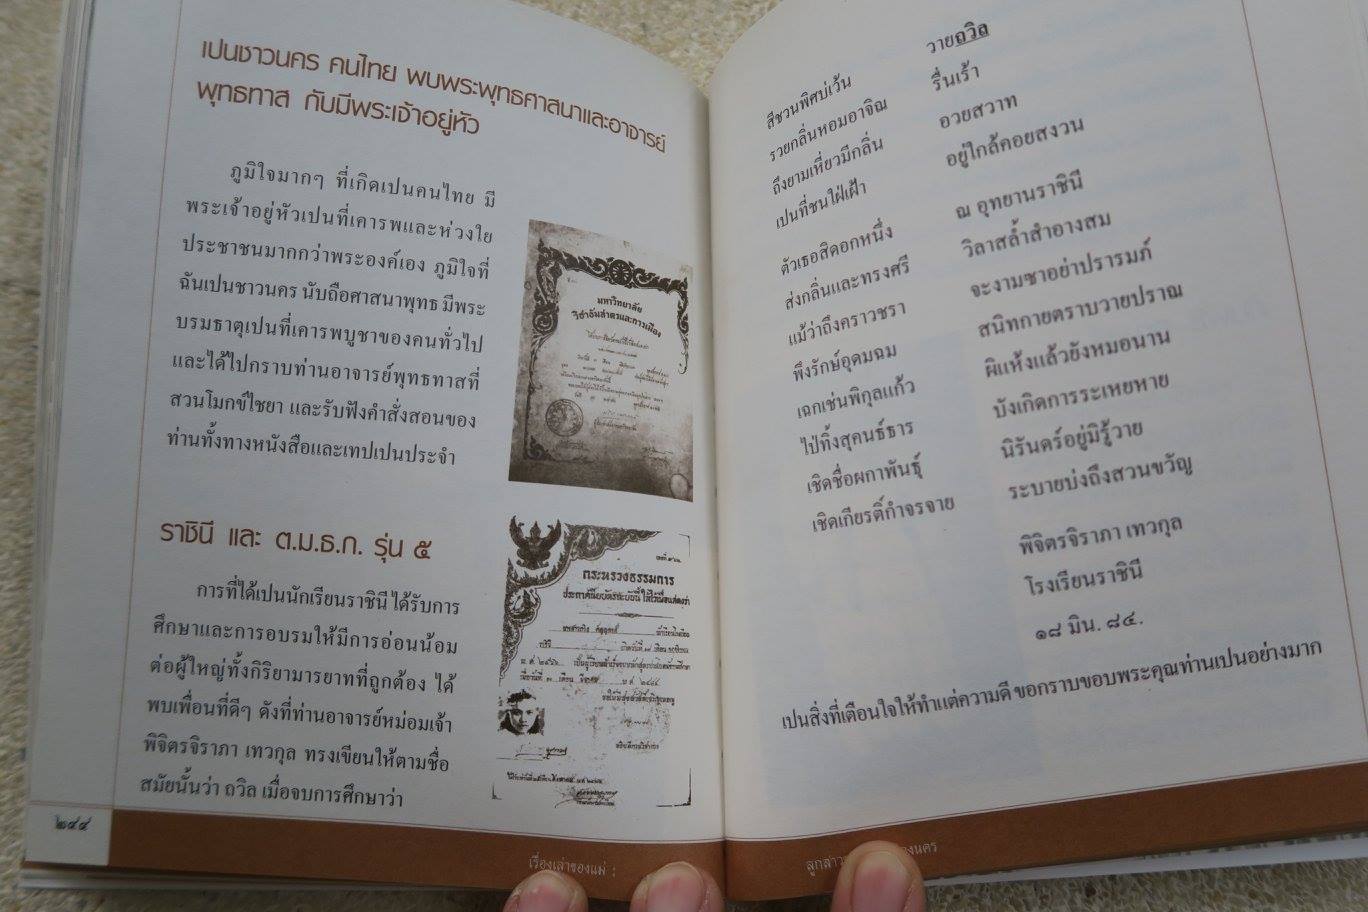 เปนชาวนคร คนไทย พบพระพุทธศาสนาและอาจารย์
พุทธทาส กับมีพระเจ้าอยู่หัว
ภูมิใจมากๆ ที่เกิดเปนคนไทย มี
พระเจ้าอยู่หัวเปนที่เคารพและห่วงใย
ประชาชนมากกว่าพระองค์เอง ภูมิใจที่
ฉันเปนชาวนคร นับถือศาสนาพุทธ มีพระ
บรมธาตุเปนที่เคารพบูชาของคนทั่วไป
และได้ไปกราบท่านอาจารย์พุทธทาสที่
สวนโมกข์ไชยา และรับฟังคำสั่งสอนของ
ท่านทั้งทางหนังสือและเทปเปนประจำ
มหาวิทยาลัย
วิชาธรรมศาสตร์และการเมือง
ราชินี และ ต.ม.ธ.ก. รุ่น ๕
การที่ได้เปนนักเรียนราชินี ได้รับการ
ศึกษาและการอบรมให้มีการอ่อนน้อม
ต่อผู้ใหญ่ทั้งกิริยามารยาทที่ถูกต้อง ได้
พบเพื่อนที่ดีๆ ดังที่ท่านอาจารย์หม่อมเจ้า
พิจิตรจิราภา เทวกุล ทรงเขียนให้ตามชื่อ
สมัยนั้นว่า ถวิล เมื่อจบการศึกษาว่า
กระทรวงธรรมการ
ประกาศนียบัตรฉะบับนี้ให้ไว้เพื่อแสดงว่า
๒๔๔
เรื่องเล่าของแม่ :
สีชวนพิศบ่เว้น วายถวิล
รวยกลิ่นหอมอาจิณ รื่นเร้า
ถึงยามเหี่ยวมีกลิ่น อวยสวาท
เปนที่ชนใฝ่เฝ้า อยู่ใกล้คอยสงวน
ตัวเธอสิดอกหนึ่ง ณ อุทยานราชินี
ส่งกลิ่นและทรงศรี วิลาสล้ำสำอางสม
แม้ว่าถึงคราวชรา จะงามซาอย่าปรารมภ์
พึงรักษ์อุดมฉม สนิทกายตราบวายปราณ
เฉกเช่นพิกุลแก้ว ผิแห้งแล้วยังหมอนาน
ไป่ทิ้งสุคนธ์ธาร บังเกิดการระเหยหาย
เชิดชื่อผกาพันธุ์ นิรันดร์อยู่มิรู้วาย
เชิดเกียรติ์กำจรจาย ระบายบ่งถึงสวนขวัญ
พิจิตรจิราภา เทวกุล
โรงเรียนราชินี
๑๘ มิน. ๘๔.
เปนสิ่งที่เตือนใจให้ทำแต่ความดี ขอกราบขอบพระคุณท่านเปนอย่างมาก